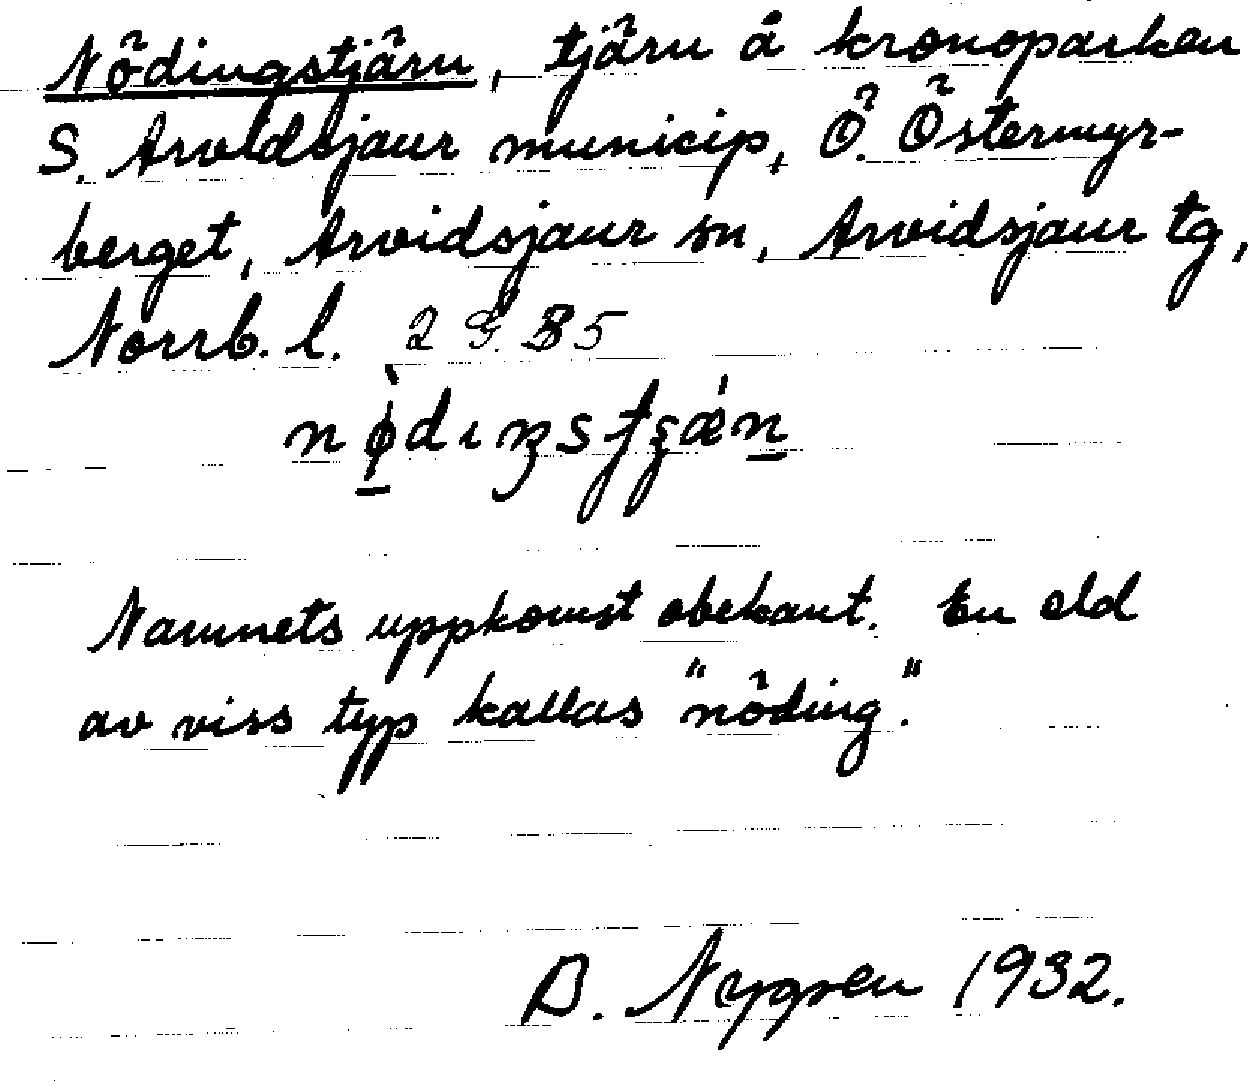 Nödingstjärn, tjärn å kronoparken
S. Arvidsjaur municip, Ö. Östermyr-
berget, Arvidsjaur sn, Arvidsjaur tg,
Norrb. l. 29.35
Namnets uppkomst obekant. En eld
av viss typ kallas "nöding".
B. Nygren 1932.